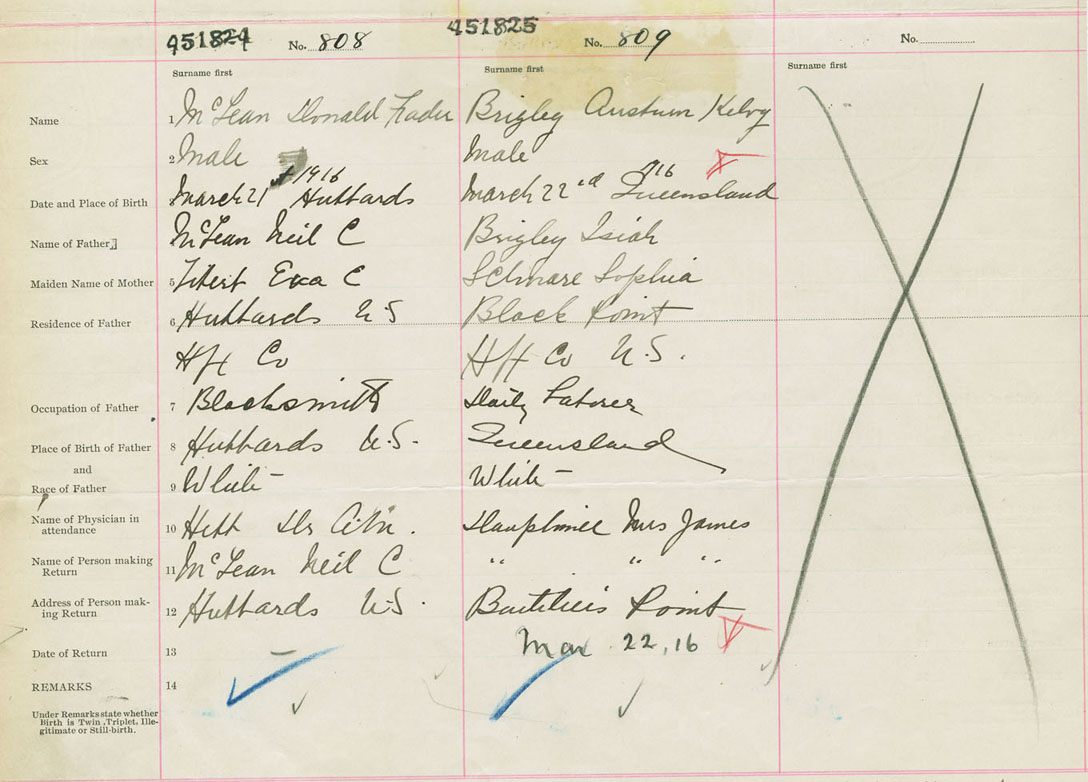 451824 No. 808 451825 No. 809 No.
Surname first Surname first Surname first
Name 1 McLean Donald Brigley Kelvy
Sex 2 Male Male
Date and Place of Birth March 21st 1916 Hubbards March 22nd 916 Queensland
Name of Father McLean Neil C Brigley Isiah
Maiden Name of Mother 5 Eva C Sophia
Residence of Father 6 Hubbards N.S Black Point
Hfx Co Hfx Co N.S.
Occupation of Father 7 Blacksmith Daily Laborer
Place of Birth of Father 8 Hubbards N.S. Queensland
and
Race of Father 9 White White
Name of Physician in
attendance 10 Dr Mrs James
Name of Person making
Return 11 McLean Neil C " " "
Address of Person mak-
ing Return 12 Hubbards N.S. Point
Date of Return 13 – Mar 22, 16
REMARKS 14
Under Remarks state whether
Birth is Twin, Triplet, Ille-
gitimate or Still-birth.